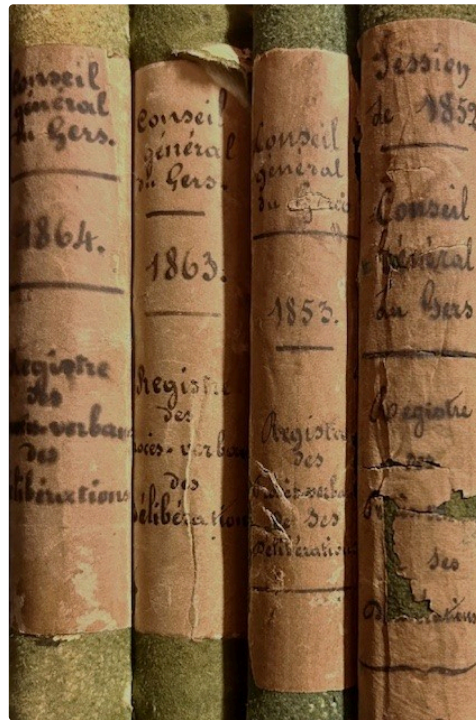 Conseil
général
du Gers.
1864.
Registre
des
Procès-verbaux
des
Délibérations
Conseil
général
du Gers.
1863.
Registre
des
Procès-verbaux
des
Délibérations
Conseil
général
du Gers
1853.
Registre
des
Procès-verbaux
de ses
Délibérations
Session
de 1852
Conseil
Général
du Gers
Registre
des
ses